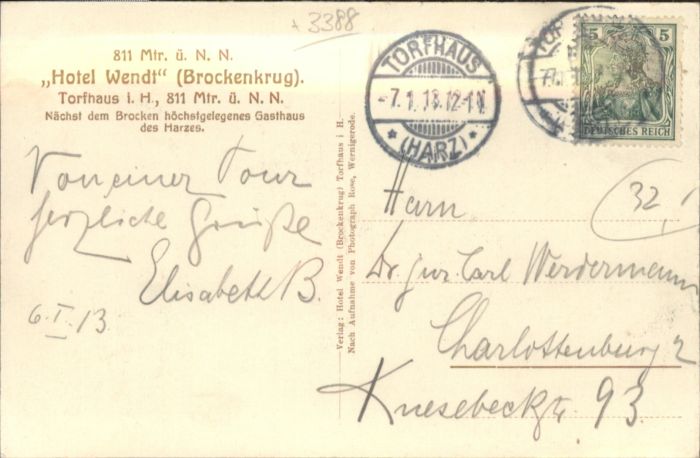 x 3388
811 Mtr. ü. N. N.
„Hotel Wendt“ (Brockenkrug).
Torfhaus i. H., 811 Mtr. ü. N. N.
Nächst dem Brocken höchstgelegenes Gasthaus
des Harzes.
Von einer Tour
herzliche Grüße
Elisabeth B.
6.I.13
Verlag: Hotel Wendt (Brockenkrug) Torfhaus i. H.
Nach Aufnahme von Photograph Rose, Wernigerode.
TORFHAUS
-7.1.13.12-1N
(HARZ)
5 5
DEUTSCHES REICH
32,
Herrn
Dr. jur. Carl Werdermann
Charlottenburg 2
Knesebeckstr. 93